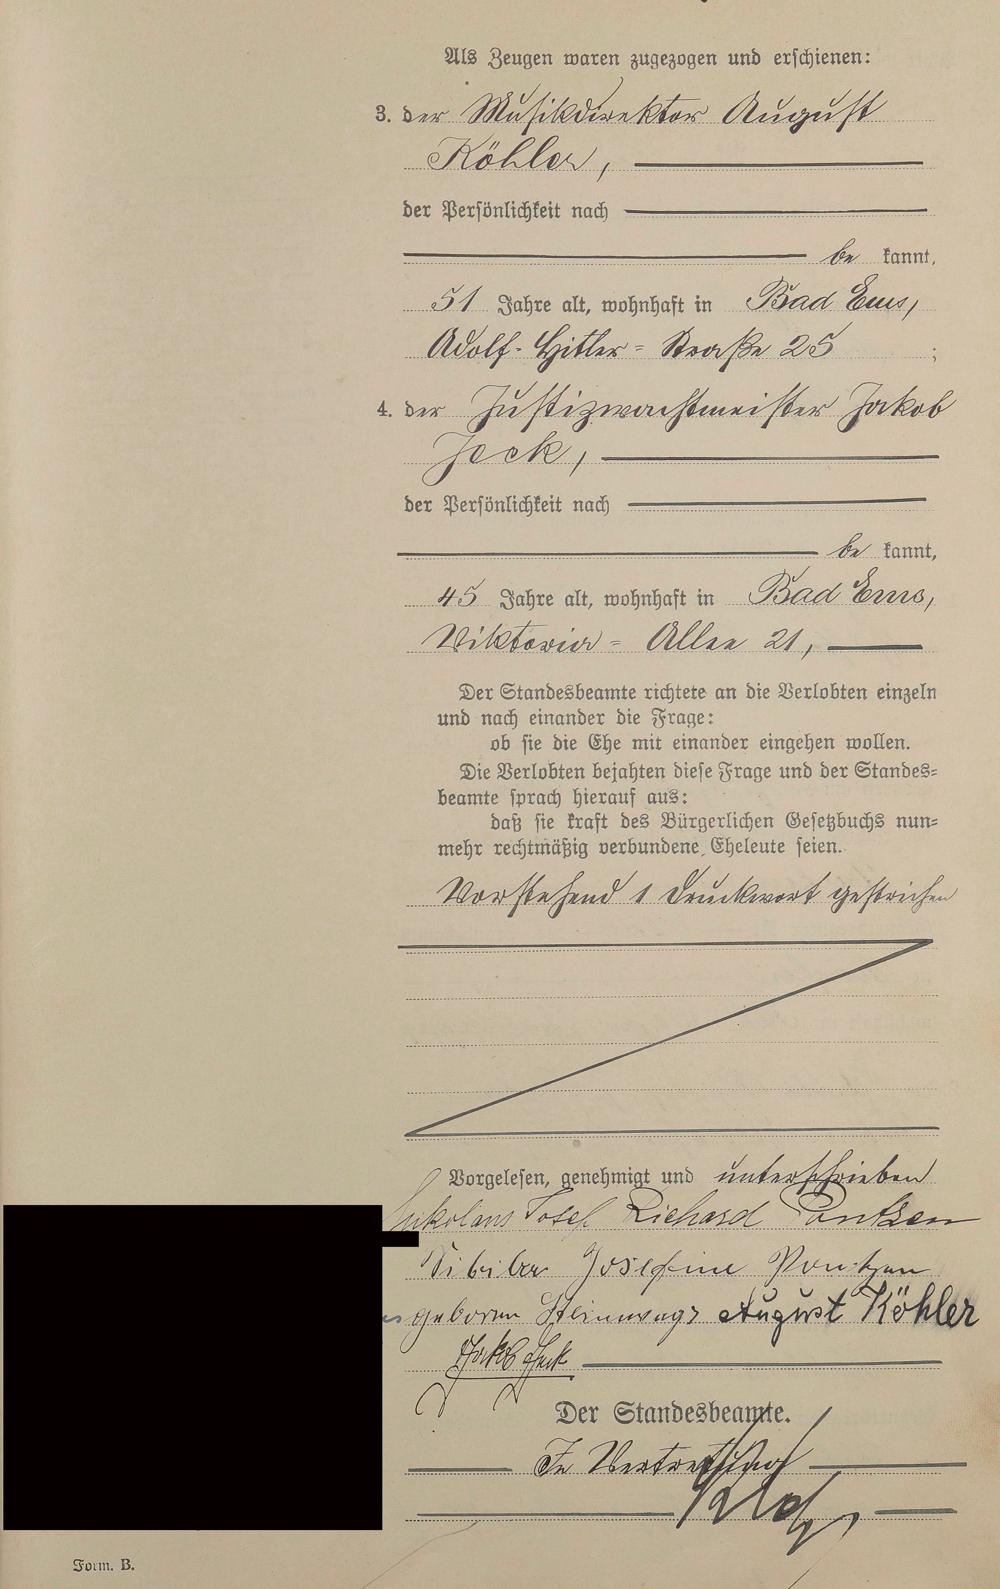 Als Zeugen waren zugezogen und erschienen:
3. der Musikdirektor August
Köhler,
der Persönlichkeit nach
be kannt,
51 Jahre alt, wohnhaft in Bad Ems,
Adolf-Hitler-Straße 25 ;
4. der Justizwachtmeister Jakob
Jeck,
der Persönlichkeit nach
be kannt,
45 Jahre alt, wohnhaft in Bad Ems,
Viktoria-Allee 21,
Der Standesbeamte richtete an die Verlobten einzeln
und nach einander die Frage:
ob sie die Ehe mit einander eingehen wollen.
Die Verlobten bejahten diese Frage und der Standes-
beamte sprach hierauf aus:
daß sie kraft des Bürgerlichen Gesetzbuchs nun-
mehr rechtmäßig verbundene Eheleute seien.
Vorstehend 1 Druckwort gestrichen
Vorgelesen, genehmigt und unterschrieben
Nikolaus Josef Richard Pontzen
Sibilla Josefine Pontzen
geboren August Köhler
Jakob Jeck
Der Standesbeamte.
In Vertretung
Form. B.